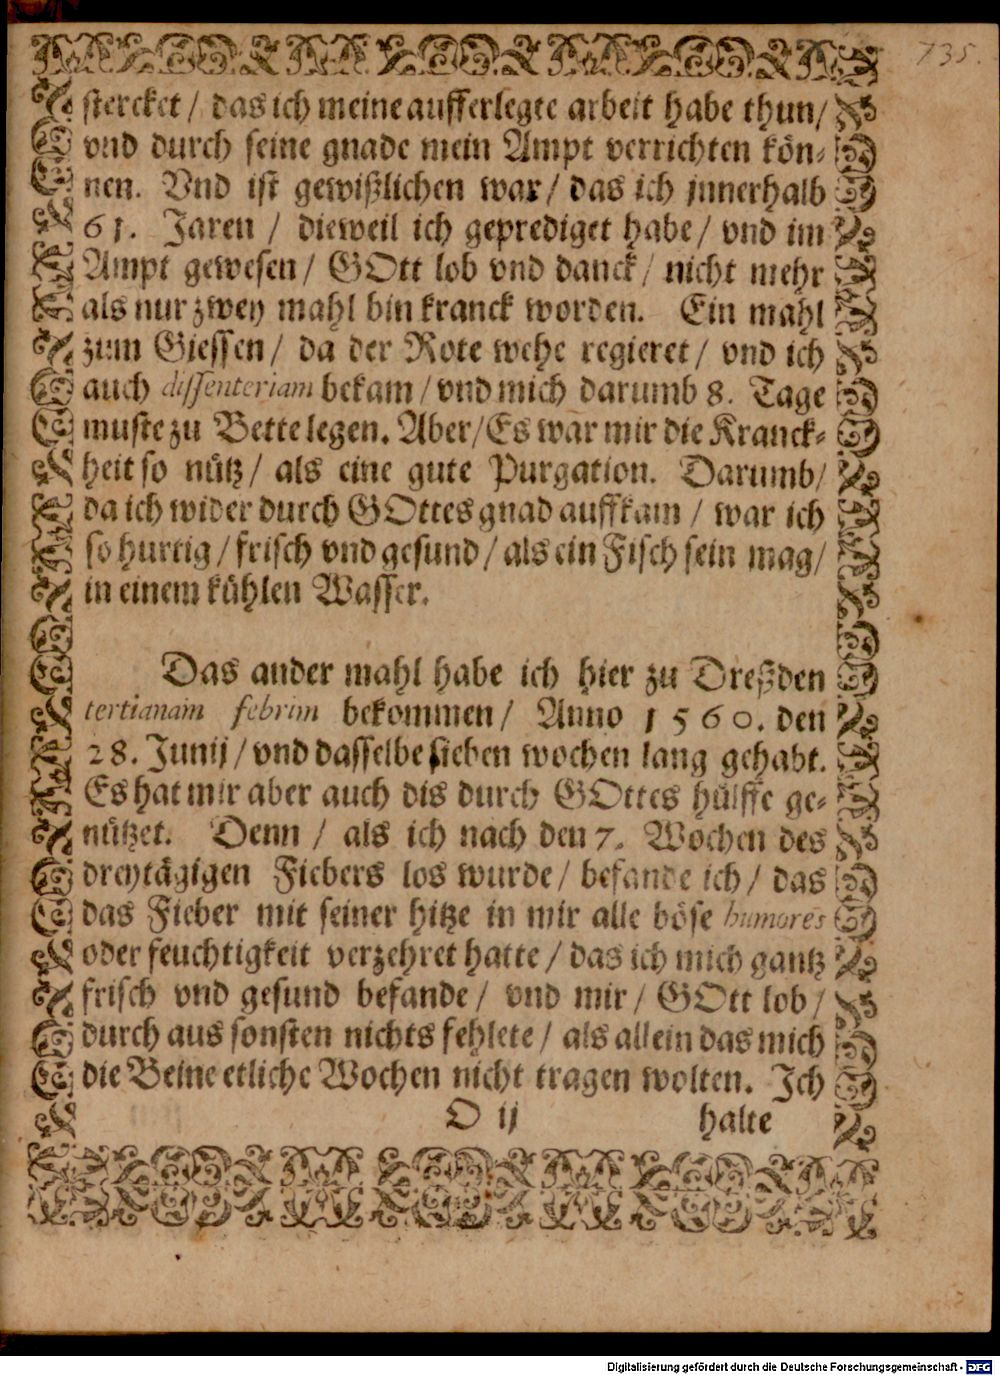 735.
stercket / das ich meine aufferlegte arbeit habe thun/
vnd durch seine gnade mein Ampt verrichten kön-
nen. Vnd ist gewißlichen war/ das ich jnnerhalb
61. Jaren / dieweil ich geprediget habe/ vnd im
Ampt gewesen/ GOtt lob vnd danck/ nicht mehr
als nur zwey mahl bin kranck worden. Ein mahl
zum Giessen/ da der Rote wehe regieret/ vnd ich
auch dissenteriam bekam/vnd mich darumb 8. Tage
muste zu Bette legen. Aber/Es war mir die Kranck-
heit so nütz/ als eine gute Purgation. Darumb/
da ich wider durch GOttes gnad auffkam / war ich
so hurtig/frisch vnd gesund/als ein Fisch sein mag/
in einem kühlen Wasser.
Das ander mahl habe ich hier zu Dreßden
tertianam febrim bekommen/ Anno 1560. den
28. Junij/vnd dasselbe sieben wochen lang gehabt.
Es hat mir aber auch dis durch GOttes hülffe ge-
nützet. Denn / als ich nach den 7. Wochen des
dreytägigen Fiebers los wurde/ befande ich/ das
das Fieber mit seiner hitze in mir alle böse humores
oder feuchtigkeit verzehret hatte/das ich mich gantz
frisch vnd gesund befande/ vnd mir/ GOtt lob/
durch aus sonsten nichts fehlete/ als allein das mich
die Beine etliche Wochen nicht tragen wolten. Ich
O ij halte
Digitalisierung gefördert durch die Deutsche Forschungsgemeinschaft - DFG